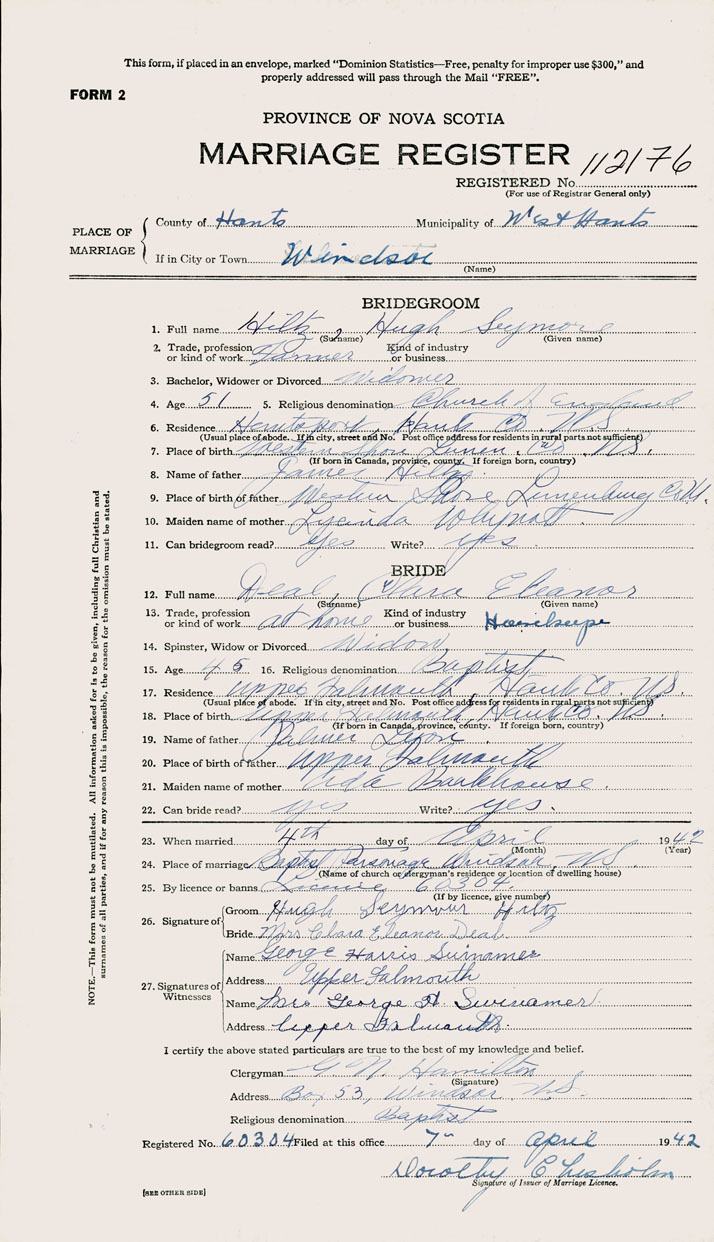 This form, if placed in an envelope, marked "Dominion Statistics—Free, penalty for improper use $300," and
properly addressed will pass through the Mail "FREE".
FORM 2
PROVINCE OF NOVA SCOTIA
MARRIAGE REGISTER 112176
REGISTERED No.
(For use of Registrar General only)
PLACE OF MARRIAGE
County of Hants Municipality of West Hants
If in City or Town Windsor
(Name)
BRIDEGROOM
1. Full name Hiltz, Hugh Seymore
(Surname) (Given name)
2. Trade, profession or kind of work Farmer Kind of industry or business
3. Bachelor, Widower or Divorced Widower
4. Age 51 5. Religious denomination Church of England
6. Residence Hantsport, Hants Co. N.S.
(Usual place of abode. If in city, street and No. Post office address for residents in rural parts not sufficient)
7. Place of birth Western Shore Lunen. Co. N.S.
(If born in Canada, province, county. If foreign born, country)
8. Name of father James Hiltz
9. Place of birth of father Western Shore Lunenburg Co. N.S.
10. Maiden name of mother Lucinda Whynott
11. Can bridegroom read? Yes Write? yes
BRIDE
12. Full name Deal, Clara Eleanor
(Surname) (Given name)
13. Trade, profession or kind of work at home Kind of industry or business
14. Spinster, Widow or Divorced Widow
15. Age 45 16. Religious denomination Baptist
17. Residence Upper Falmouth, Hants Co. N.S.
(Usual place of abode. If in city, street and No. Post office address for residents in rural parts not sufficient)
18. Place of birth Upper Falmouth, Hants Co. N.S.
(If born in Canada, province, county. If foreign born, country)
19. Name of father Palmer
20. Place of birth of father Upper Falmouth
21. Maiden name of mother Ada Barkhouse
22. Can bride read? yes Write? yes.
23. When married 4th day of April 1942
(Month) (Year)
24. Place of marriage Baptist Parsonage Windsor, N.S.
(Name of church or clergyman's residence or location of dwelling house)
25. By licence or banns Licence 60304
(If by licence, give number)
26. Signature of
Groom Hugh Seymour Hiltz
Bride Mrs Clara Eleanor Deal
27. Signatures of Witnesses
Name George Harris Swinamer
Address Upper Falmouth
Name Mrs George H Swinamer
Address Upper Falmouth.
I certify the above stated particulars are true to the best of my knowledge and belief.
Clergyman G. N. Hamilton
(Signature)
Address Box 53, Windsor N.S.
Religious denomination Baptist
Registered No. 60304 Filed at this office 7" day of April 1942
Dorothy Chisholm
Signature of Issuer of Marriage Licence.
[SEE OTHER SIDE]
NOTE.—This form must not be mutilated. All information asked for is to be given, including full Christian and
surnames of all parties, and if for any reason this is impossible, the reason for the omission must be stated.